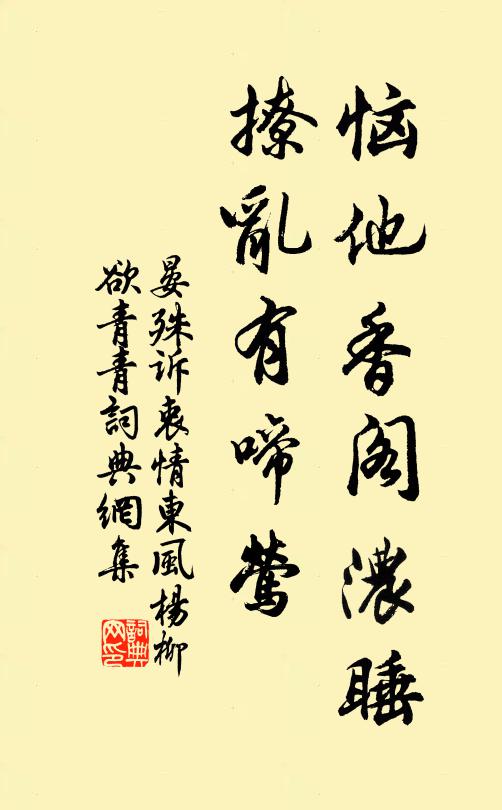 恼他香阁浓睡
撩亂有啼莺
晏殊诉衷情東風楊柳
欲青青詞典網集
詞典网印